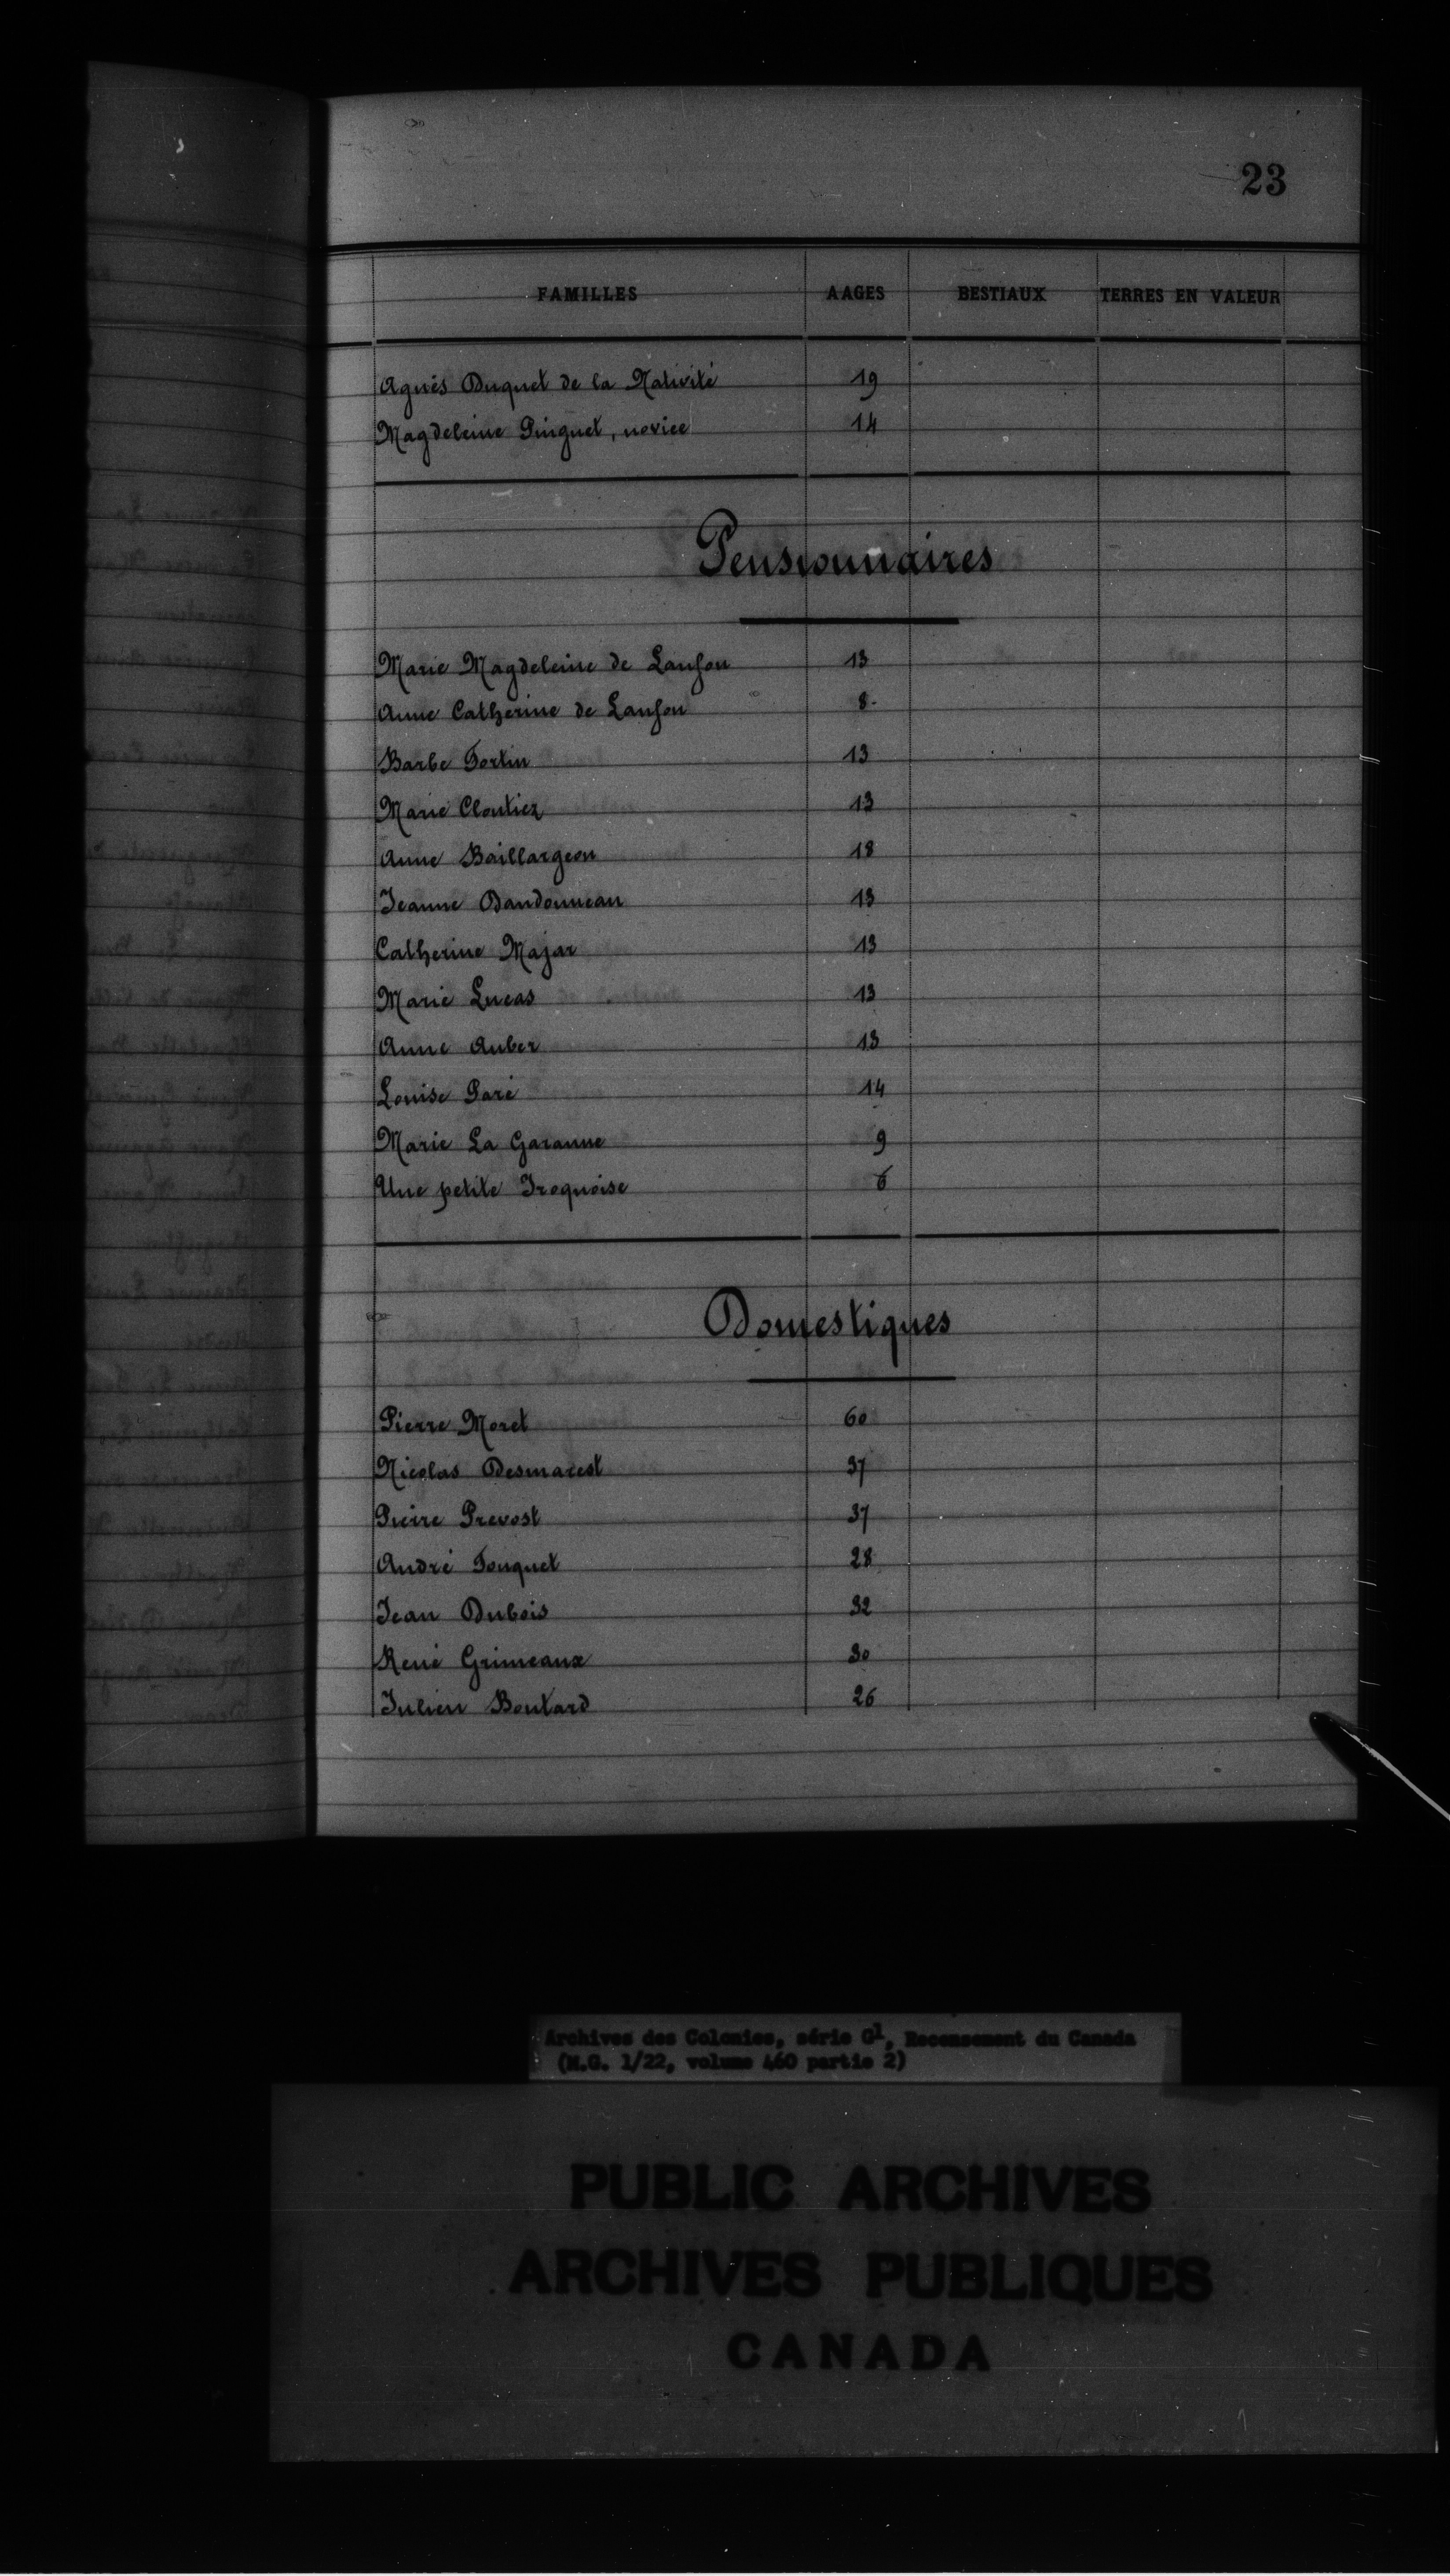 23
FAMILLES AAGES BESTIAUX TERRES EN VALEUR
Agnés Duquet de la Nativité 19
Magdeleine Pinguet, novice 14
Pensionnaires
Marie Magdeleine de Lauson 13
Anne Catherine de Lauson 8
Barbe Fortin 13
Marie Cloutier 13
Anne Baillargeon 18
Jeanne Dandonneau 13
Catherine Majar 13
Marie Lucas 13
Anne Auber 13
Louise Paré 14
Marie La Garanne 9
Une petite Iroquoise 6
Domestiques
Pierre Moret 60
Nicolas Desmarest 37
Pierre Prevost 37
André Fouquet 28
Jean Dubois 32
René Grimeaux 30
Julien Boutard 26
Archives des Colonies, série G1, Recensement du Canada
(M.G. 1/22, volume 460 partie 2)
PUBLIC ARCHIVES
ARCHIVES PUBLIQUES
CANADA